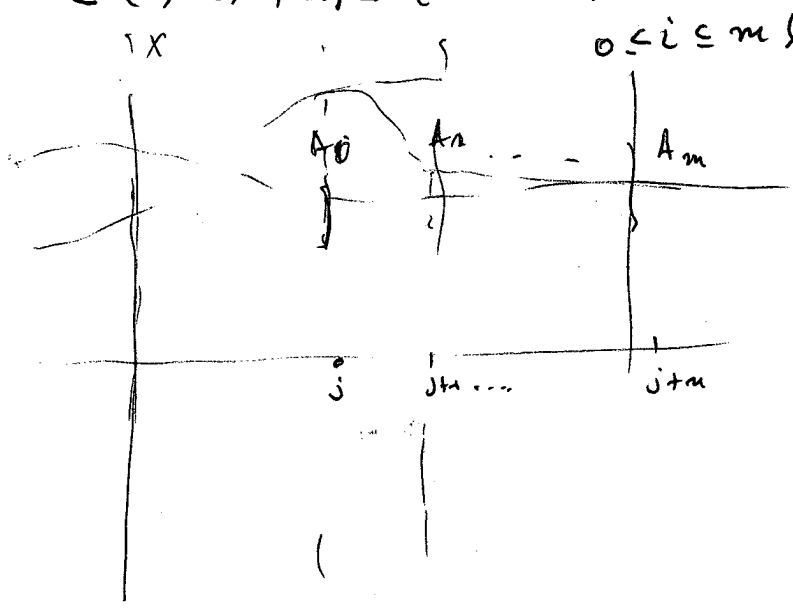 0 ≤ i ≤ m }
X
A0 A1 . . . Am
j j+1 .... j+m